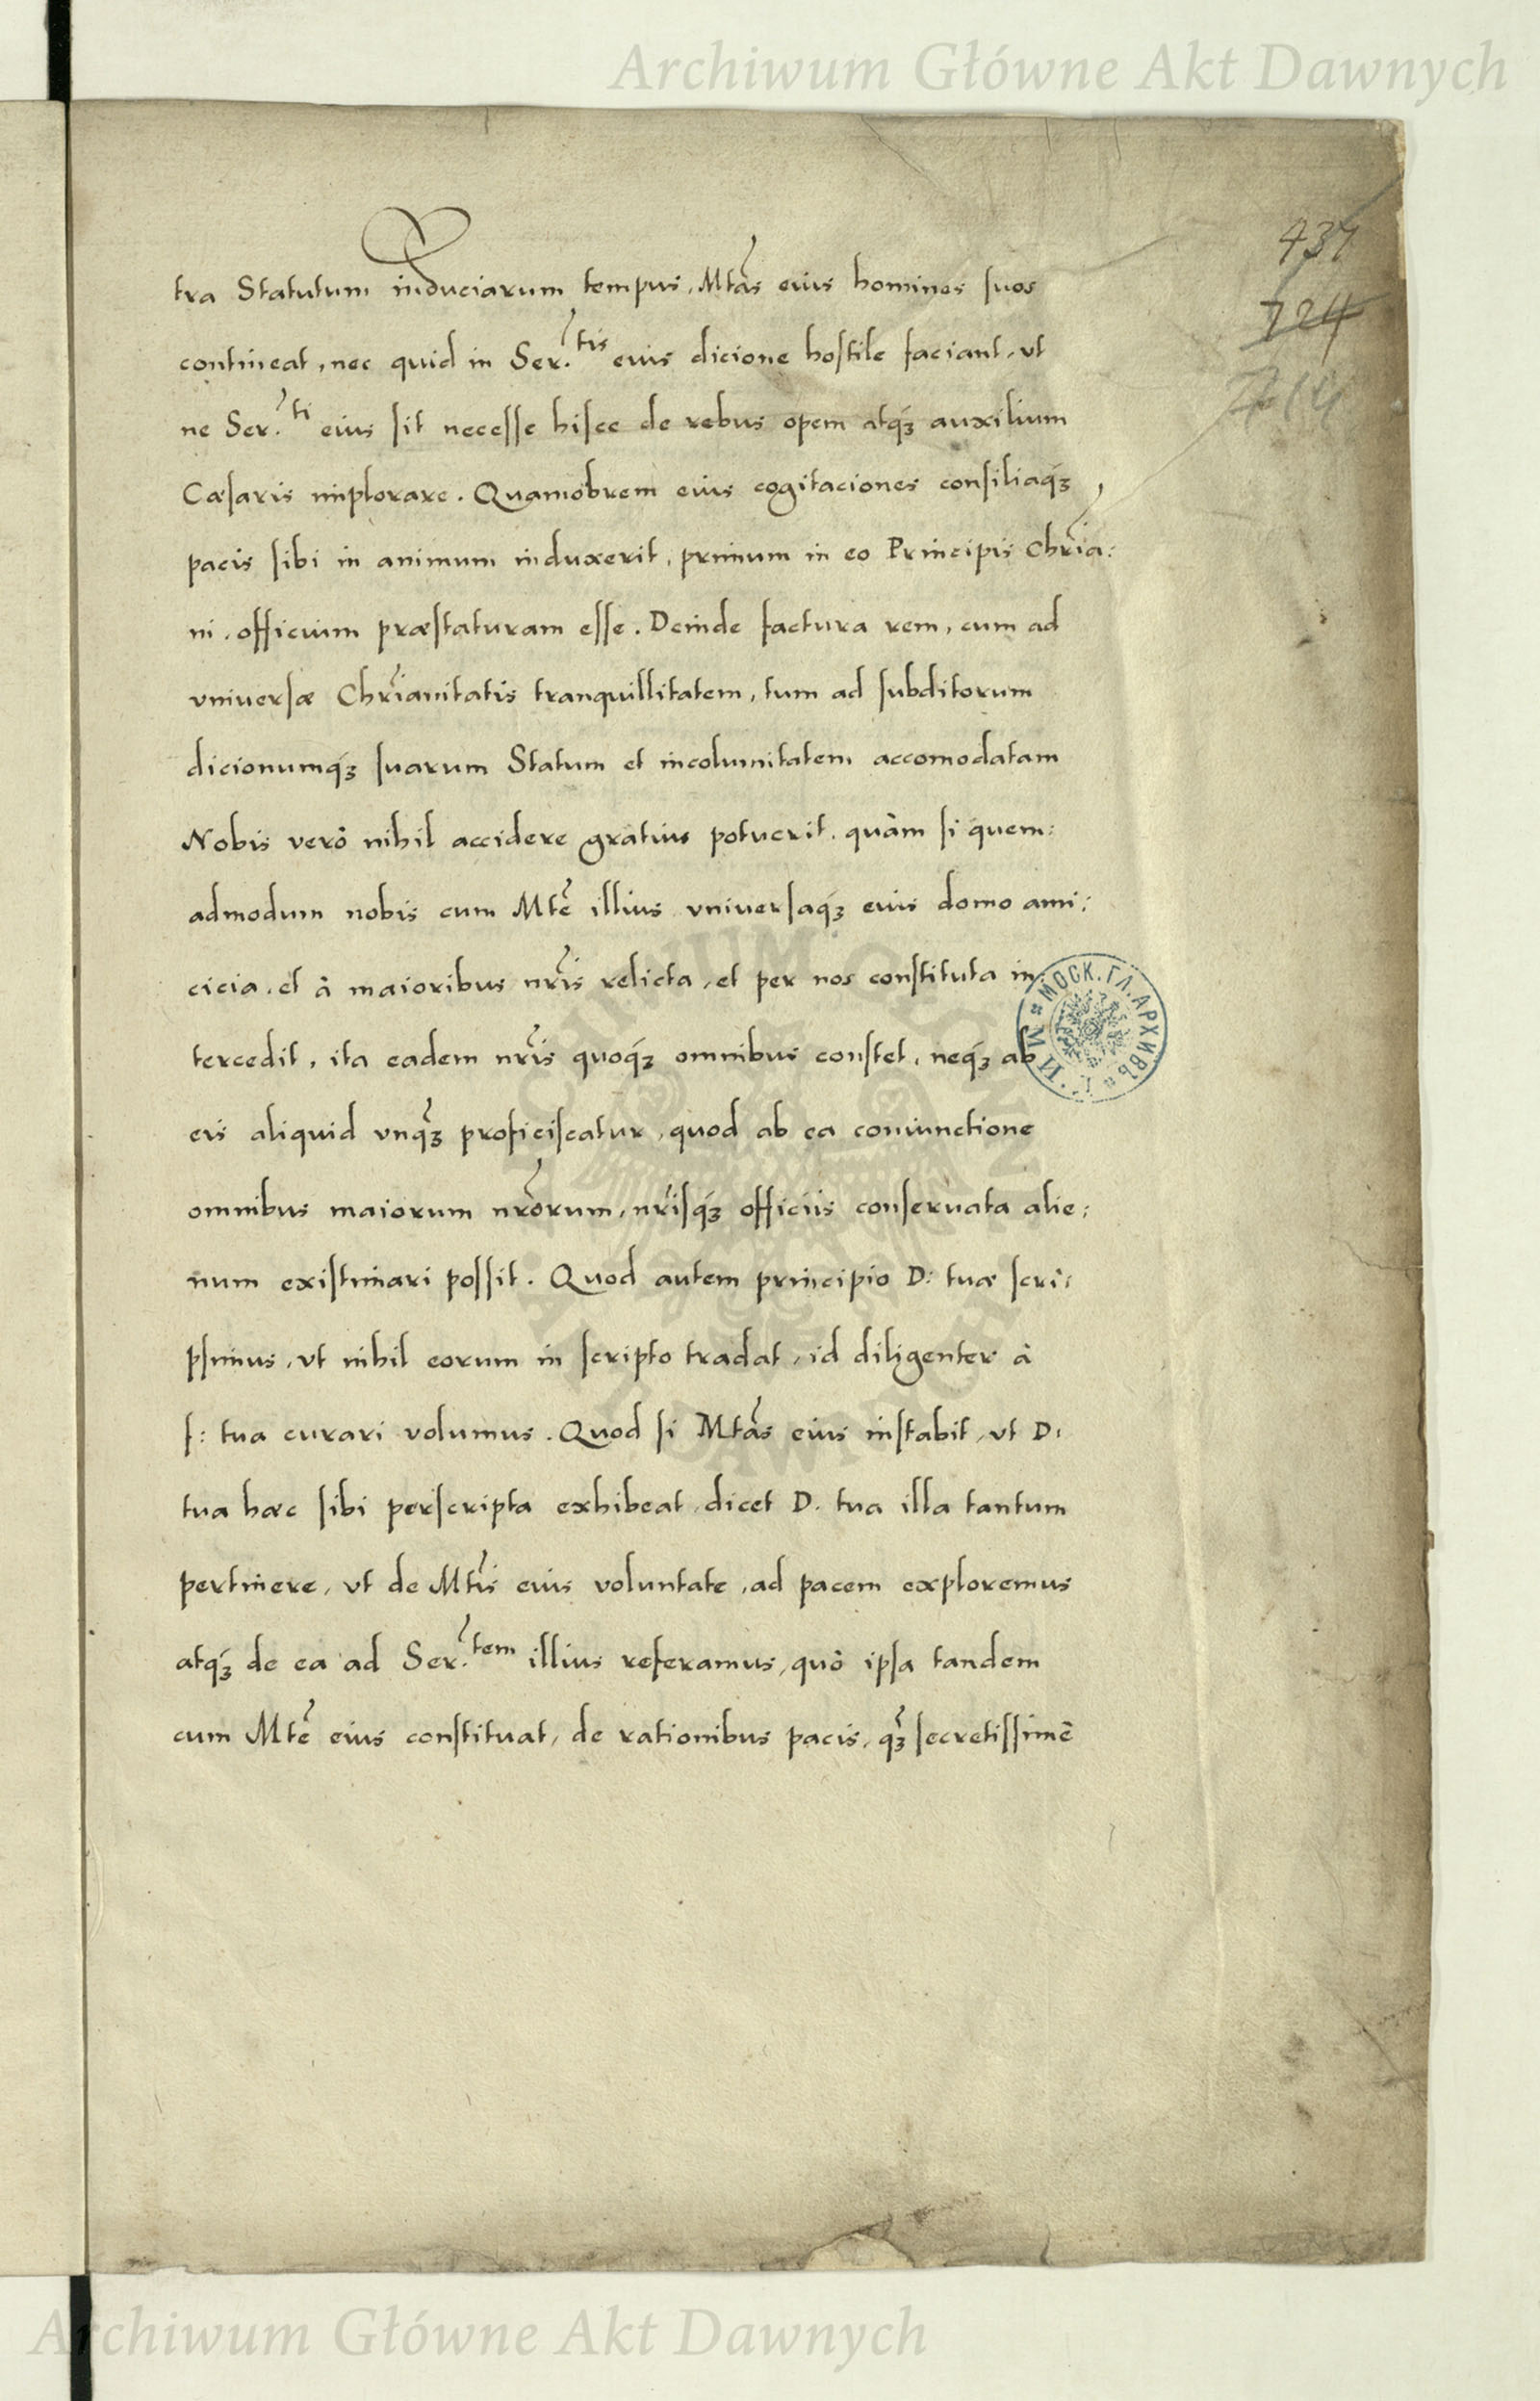 Archiwum Główne Akt Dawnych
434
724
tra Statutum induciarum tempus, Mtas eius homines suos
contineat, nec quid in Ser.tis eius dicione hostile faciant, vt
ne Ser.ti eius sit necesse hisce de rebus opem atq́ꝫ auxilium
Cæsaris implorare. Quamobrem eius cogitaciones consiliaq́ꝫ
pacis sibi in animum induxerit, primum in eo Principis Chria:
ni, officium præstaturam esse. Deinde factura rem, cum ad
vniversæ Chrianitatis tranquillitatem, tum ad subditorum
dicionumq́ꝫ suarum Statum et incolumitatem accomodatam
Nobis verò nihil accidere gratius potuerit, quàm si quem:
admodum nobis cum Mte illius vniversaq́ꝫ eius domo ami:
cicia, et à maioribus nris relicta, et per nos constituta in
tercedit, ita eadem nris quoq́ꝫ omnibus constet, neq́ꝫ ab
eis aliquid vnqꝫ proficiscatur, quod ab ea coniunctione
omnibus maiorum nrorum, nrisq́ꝫ officiis conservata alie:
num existimari possit. Quod autem principio D: tuæ scri:
psimus, vt nihil eorum in scripto tradat, id diligenter à
s: tua curari volumus. Quod si Mtas eius instabit, vt D:
tua hæc sibi perscripta exhibeat, dicet D. tua illa tantum
pertinere, vt de Mtis eius voluntate, ad pacem exploremus
atq́ꝫ de ea ad Ser.tem illius referamus, quò ipsa tandem
cum Mte eius constituat, de rationibus pacis, qꝫ secretissimè
МОСК. ГЛ. АРХИВЪ
М. И. Д.
Archiwum Główne Akt Dawnych